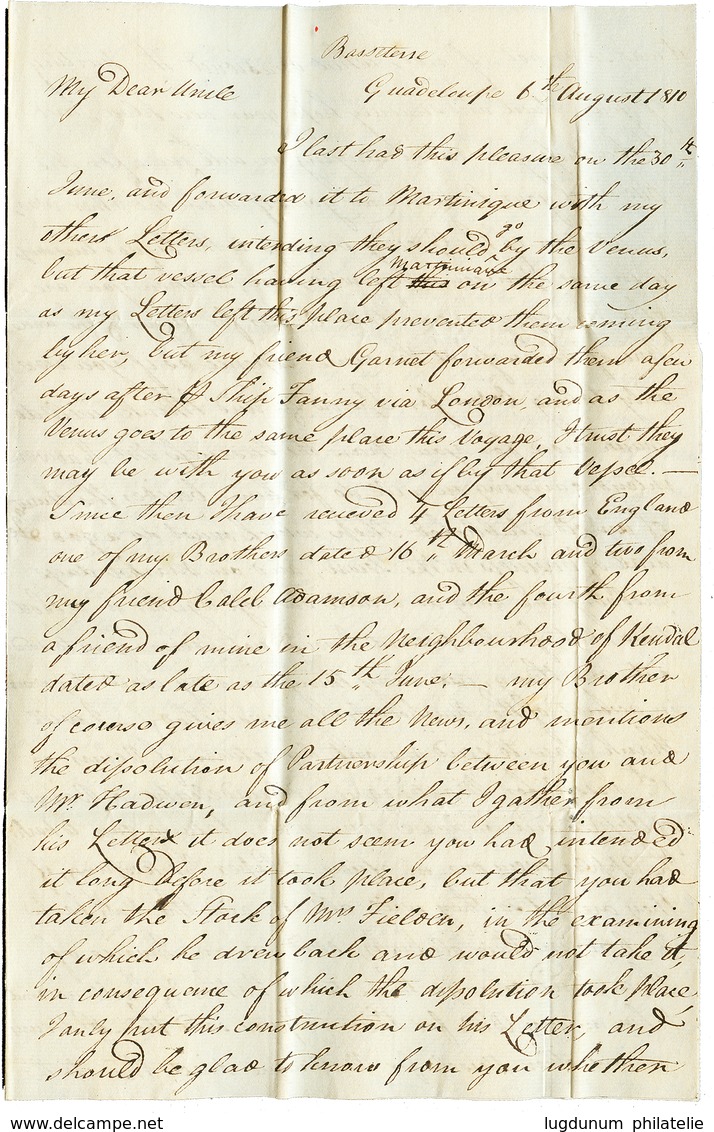 Bassterre
My Dear Uncle Guadeloupe 6th August 1810
I last had this pleasure on the 30th
June, and forwarded it to Martinique with my
other Letters, intending they should go by the Venus,
but that vessel having left this Martinique on the same day
as my Letters left this place prevented them coming
by her, but my friend Garnet forwarded them a few
days after Ship Fanny via London, and as the
Venus goes to the same place this Voyage, I trust they
may be with you as soon as if by that Vessel. —
Since then I have received 4 Letters from England
one of my Brothers dated 16th March and two from
my friend Caleb Adamson, and the fourth from
a friend of mine in the Neighbourhood of Kendal
dated as late as the 15th June. — my Brother
of course gives me all the News, and mentions
the dissolution of Partnership between you and
Mr. Hadwen, and from what I gather from
his Letter it does not seem you had intended
it long before it took place, but that you had
taken the Stock of Mrs Fielden, in the examining
of which he drew back and would not take it,
in consequence of which the dissolution took place,
I only put this construction on his Letter, and
should be glad to know from you whether
lugdunum philatelie
www.delcampe.net